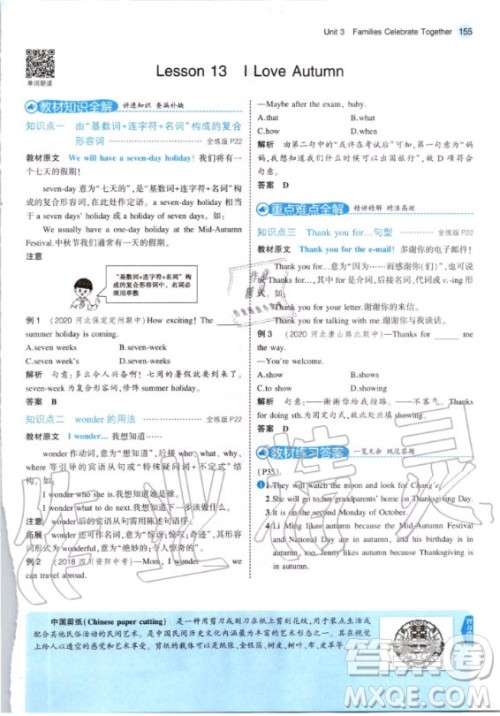 Unit 3 Families Celebrate Together 155
单词朗读
Lesson 13 I Love Autumn
教材知识全解 讲透知识 查漏补缺
知识点一 由“基数词+连字符+名词”构成的复合
形容词 全练版 P22
教材原文 We will have a seven-day holiday! 我们将有一
个七天的假期!
seven-day 意为“七天的”,是“基数词+连字符+名词”构
成的复合形容词,在此处作定语。a seven-day holiday 相
当于 a holiday of seven days。如:
We usually have a seven-day holiday at the Mid-Autumn
Festival.中秋节我们通常有一个七天的假期。
注意
“基数词+连字符+名词”构
成的复合形容词中,名词必
须用单数
例 1 (2020 河北保定定州期中) How exciting! The
summer holiday is coming.
A.seven weeks B.seven-weeks
C.seven week D.seven-week
解析 句意:多么令人兴奋啊!七周的暑假就要到来了。
seven-week 为复合形容词,修饰 summer holiday。
答案 D
知识点二 wonder 的用法 全练版 P22
教材原文 I wonder... 我想知道……
wonder 作动词,意为“想知道”,后接 who, what, why,
where 等引导的宾语从句或“特殊疑问词+不定式”结
构。如:
I wonder who she is. 我想知道她是谁。
I wonder what to do next. 我想知道下一步该做什么。
注意 wonder 后的宾语从句需用陈述句语序。
拓展 wonder 还可作名词,意为“惊奇;惊叹”,其形容
词形式为 wonderful,意为“绝妙的;令人惊奇的”。
例 2 (2018 四川资阳中考) —Mom, I wonder we
can travel abroad.
—Maybe after the exam, baby.
A.that B.what
C.how D.when
解析 由第二句中的“或许在考试后”可知,第一句意为“妈
妈,我想知道我们什么时候可以出国旅行”,故 D 项符合
句意。
答案 D
重点难点全解 精讲精解 精准高效
知识点三 Thank you for...句型 全练版 P22
教材原文 Thank you for the e-mail! 多谢你的电子邮件!
Thank you for... 意为“因为……而感谢你(们)”,也可说
Thanks for...,其中 for 是介词,后接名词、代词或 v.-ing 形
式。如:
Thank you for your letter. 谢谢你的来信。
Thank you for talking with me. 谢谢你与我谈话。
例 3 (2020 河北唐山路北期中) —Thanks for me
the way.
—You're welcome.
A.show B.shows
C.to show D.showing
解析 句意:——谢谢你给我指路。——不客气。Thanks
for doing sth.为固定句型,意为“因做某事而感谢”。
答案 D
教材练习答案 一览无余 规范答题
(P35)
1.They will watch the moon and look for Chang'e.
2.She will go to her grandparents' home on Thanksgiving Day.
3.It is on the second Monday of October.
4.Li Ming likes autumn because the Mid-Autumn Festival
and National Day are in autumn, and it is his favourite
season. Jenny likes autumn because Thanksgiving is
in autumn.
中国剪纸(Chinese paper cutting) 是一种用剪刀或刻刀在纸上剪刻花纹,用于装点生活或配
合其他民俗活动的民间艺术。是中国民间历史文化内涵最为丰富的艺术形态之一。剪纸在视觉
上给人以透空的感觉和艺术享受。其载体可以是纸张、金银箔、树皮、树叶、布、皮、革等。
答案圈
MXQE.COM